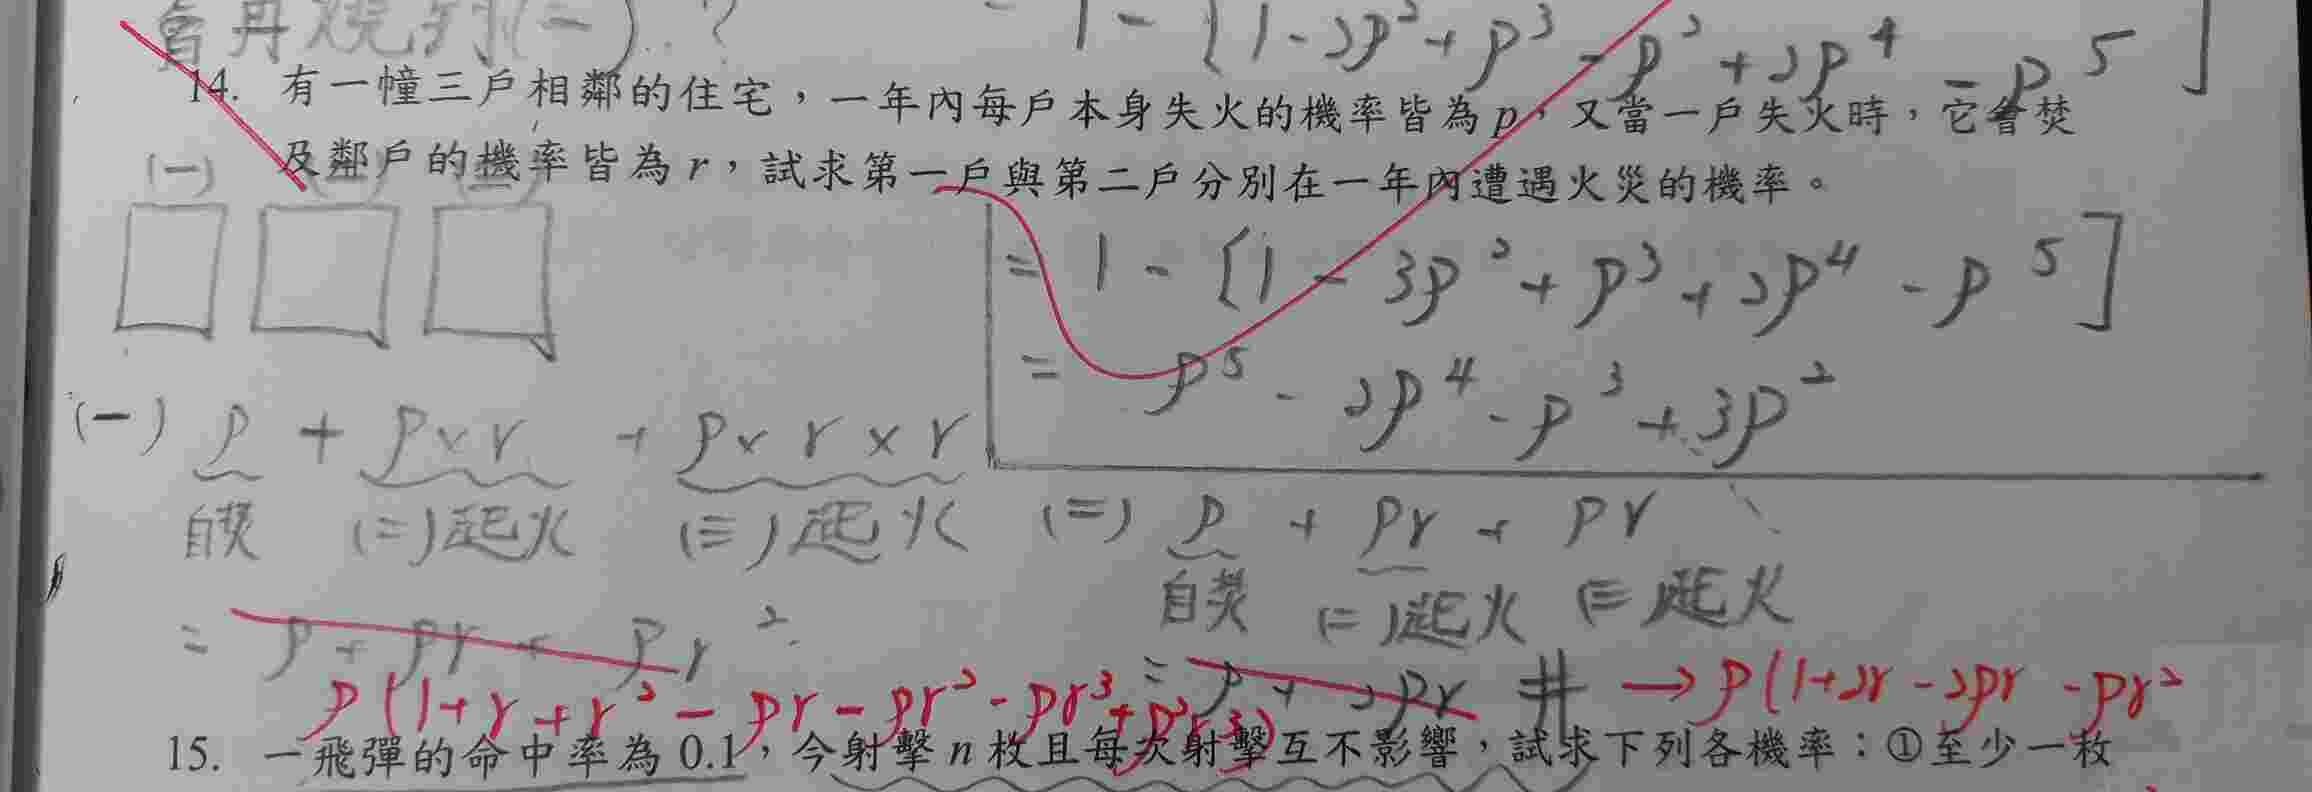 會再燒到(一)..?
= 1 - [1 - 2p² + p³ - p² + 2p⁴ - p⁵]
14. 有一幢三戶相鄰的住宅，一年內每戶本身失火的機率皆為 p，又當一戶失火時，它會焚
及鄰戶的機率皆為 r，試求第一戶與第二戶分別在一年內遭遇火災的機率。
(一)
= 1 - [1 - 3p² + p³ + 2p⁴ - p⁵]
= p⁵ - 2p⁴ - p³ + 3p²
(一) p + p×r + p×r×r
自焚 (二)起火 (三)起火
(二) p + pr + pr
自焚 (二)起火 (三)起火
= p + pr + pr²
= p + 2pr # → p(1+2r - 2pr - pr²
p(1+r+r² - pr - pr² - pr³ + p²r³)
15. 一飛彈的命中率為 0.1，今射擊 n 枚且每次射擊互不影響，試求下列各機率：①至少一枚